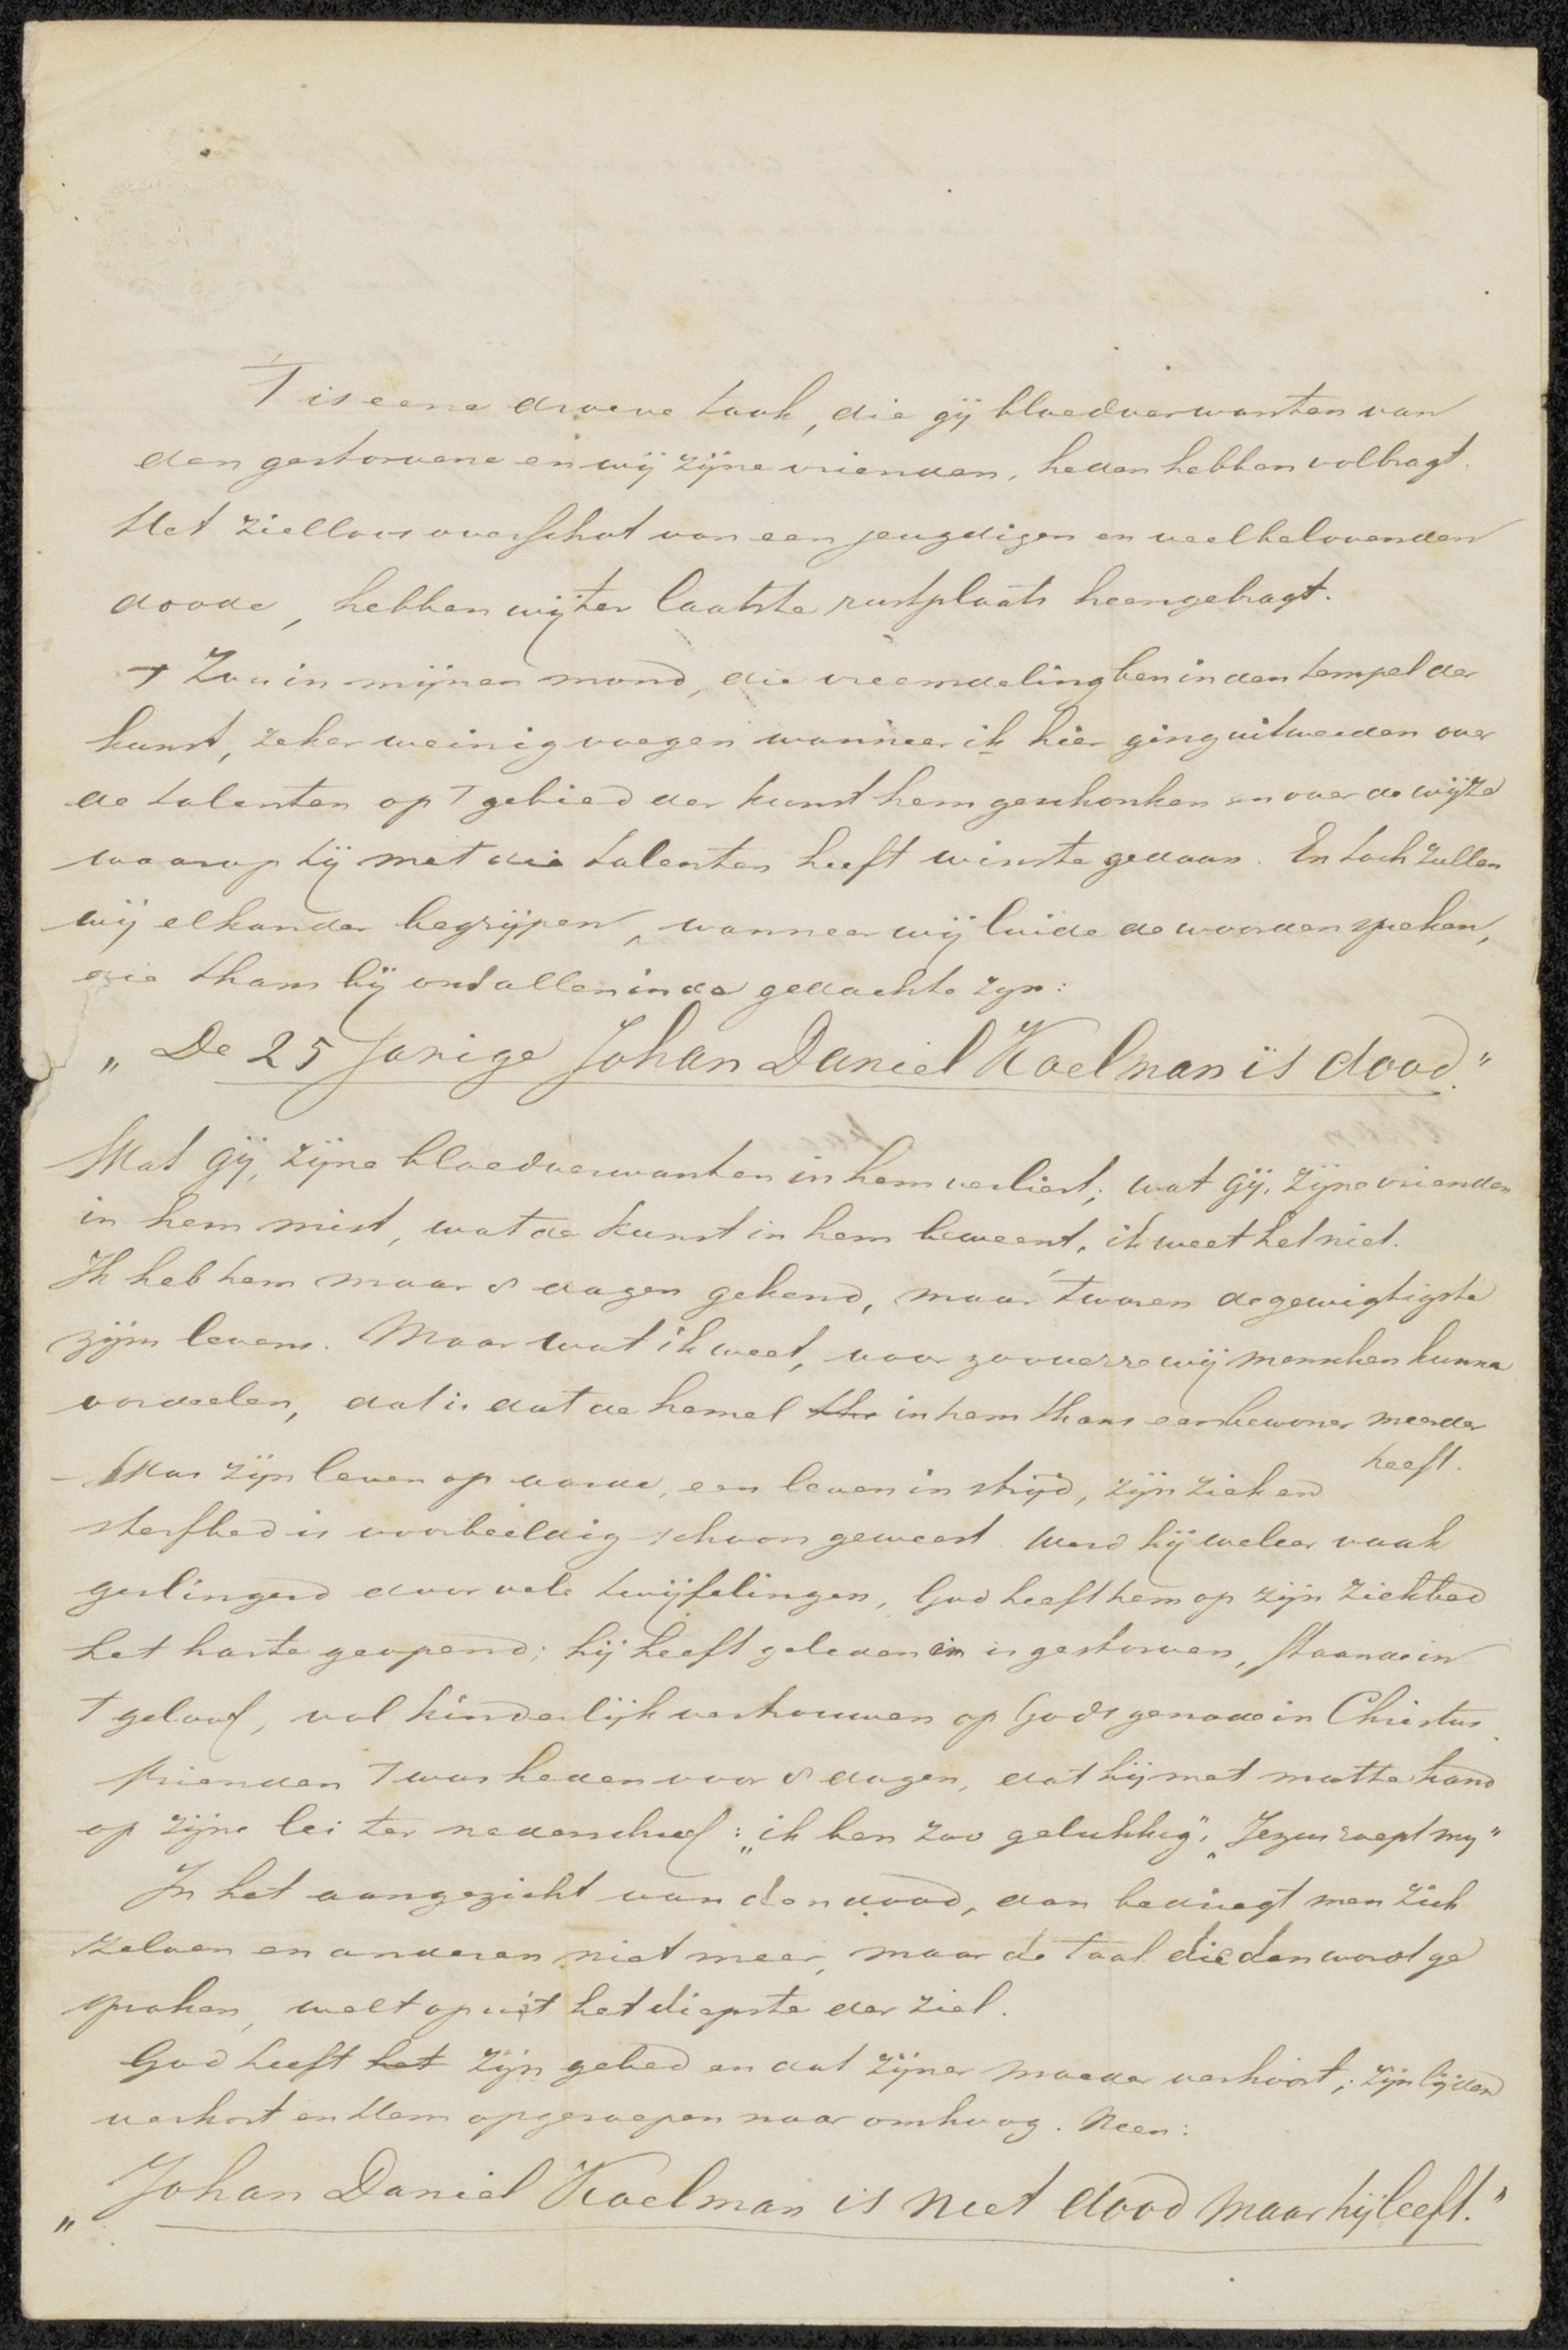 'T is eene droeve taak, die gij bloedverwanten van
den gestorvene en wij zijne vrienden, heden hebben volbragt.
Het zielloos overschot van een jeugdigen en veelbelovenden
doode, hebben wij ter laatste rustplaats heengebragt.
'T Zou in mijnen mond, die vreemdeling ben in den tempel der
kunst, zeker weinig voegen wanneer ik hier ging uitweiden over
de talenten op 't gebied der kunst hem geschonken en over de wijze
waarop hij met die talenten heeft winste gedaan. En toch zullen
wij elkander begrijpen, wanneer wij luide de woorden spreken,
die thans bij ons allen in de gedachte zijn:
„De 25 jarige Johan Daniel Koelman is dood."
Wat gij, zijne bloedverwanten in hem verliest; wat gij, zijne vrienden
in hem mist, wat de kunst in hem beweent, ik weet het niet.
Ik heb hem maar 8 dagen gekend, maar 't waren de gewigtigste
zijns levens. Maar wat ik weet, voor zooverre wij menschen kunnen
oordeelen, dat is dat de hemel thr in hem thans een bewoner meerder
heeft.
– Was zijn leven op aarde, een leven in strijd, zijn ziek en
sterfbed is voorbeeldig schoon geweest. Werd hij weleer vaak
geslingerd door vele twijfelingen, God heeft hem op zijn ziekbed
het harte geopend; hij heeft geleden en is gestorven, staande in
't geloof, vol kinderlijk vertrouwen op Gods genade in Christus.
Vrienden 't was heden voor 8 dagen, dat hij met matte hand
op zijne lei ter nederschreef: „ik ben zoo gelukkig", „Jezus roept mij"
In het aangezicht van den dood, dan bedriegt men zich
zelven en anderen niet meer, maar de taal die dan wordt ge
sproken, welt op uit het diepste der ziel.
God heeft het zijn gebed en dat zijner moeder verhoort; zijn lijden
verkort en Hem opgeroepen naar omhoog. Neen:
„Johan Daniel Koelman is niet dood maar hij leeft."